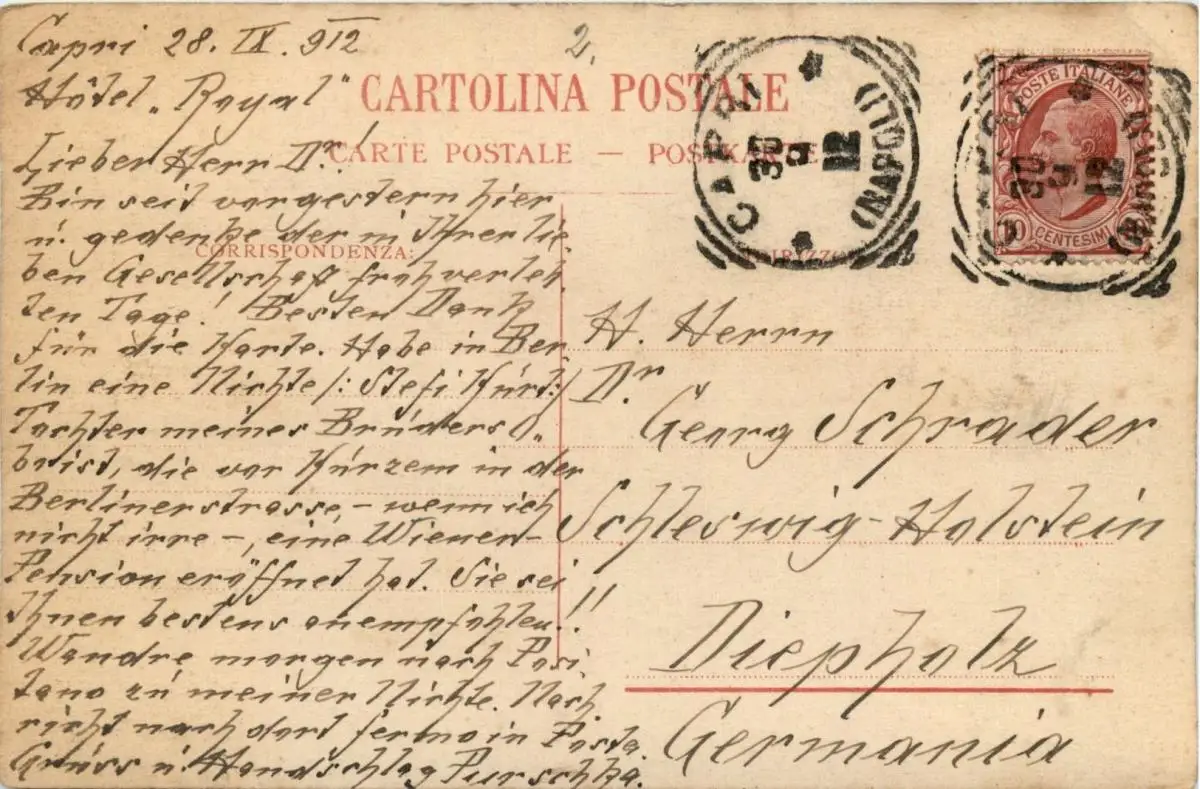 Capri 28. IX. 912
2.
Hôtel „Royal"
CARTOLINA POSTALE
CARTE POSTALE — POSTKARTE
Lieber Herr Dr!
Bin seit vorgestern hier
u. gedenke der in Ihrer lie
CORRISPONDENZA:
ben Gesellschaft froh verleb
ten Tage! Besten Dank
für die Karte. Habe in Ber
lin eine Nichte /: Stefi Kürt :/
Tochter meines Brúders
brist, die vor Kúrzem in der
Berlinerstrasse – wenn ich
nicht irre –, eine Wiener-
Pension eröffnet hat. Sie sei
Ihnen bestens anempfohlen!!
Wandre morgen nach Posi
tano zú meiner Nichte. Nach
richt nach dort fermo in Posta.
Grúss ú. Handschlag Purschka.
CAPRI (NAPOLI)
30 9 12
POSTE ITALIANE
10 CENTESIMI
CAPRI (NAPOLI)
30 9 12
INDIRIZZO
H. Herrn
Dr
Georg Schrader
Schleswig-Holstein
Diepholz
Germania